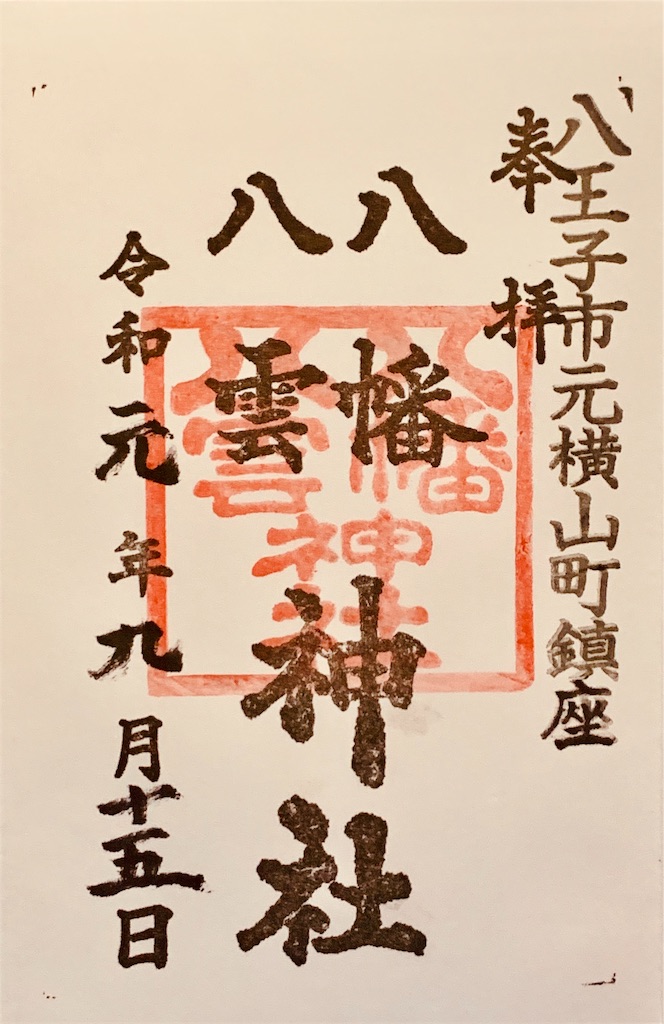 八王子市元横山町鎮座
奉拝
八幡
八雲
神社
令和元年九月十五日
八幡
八雲
神社